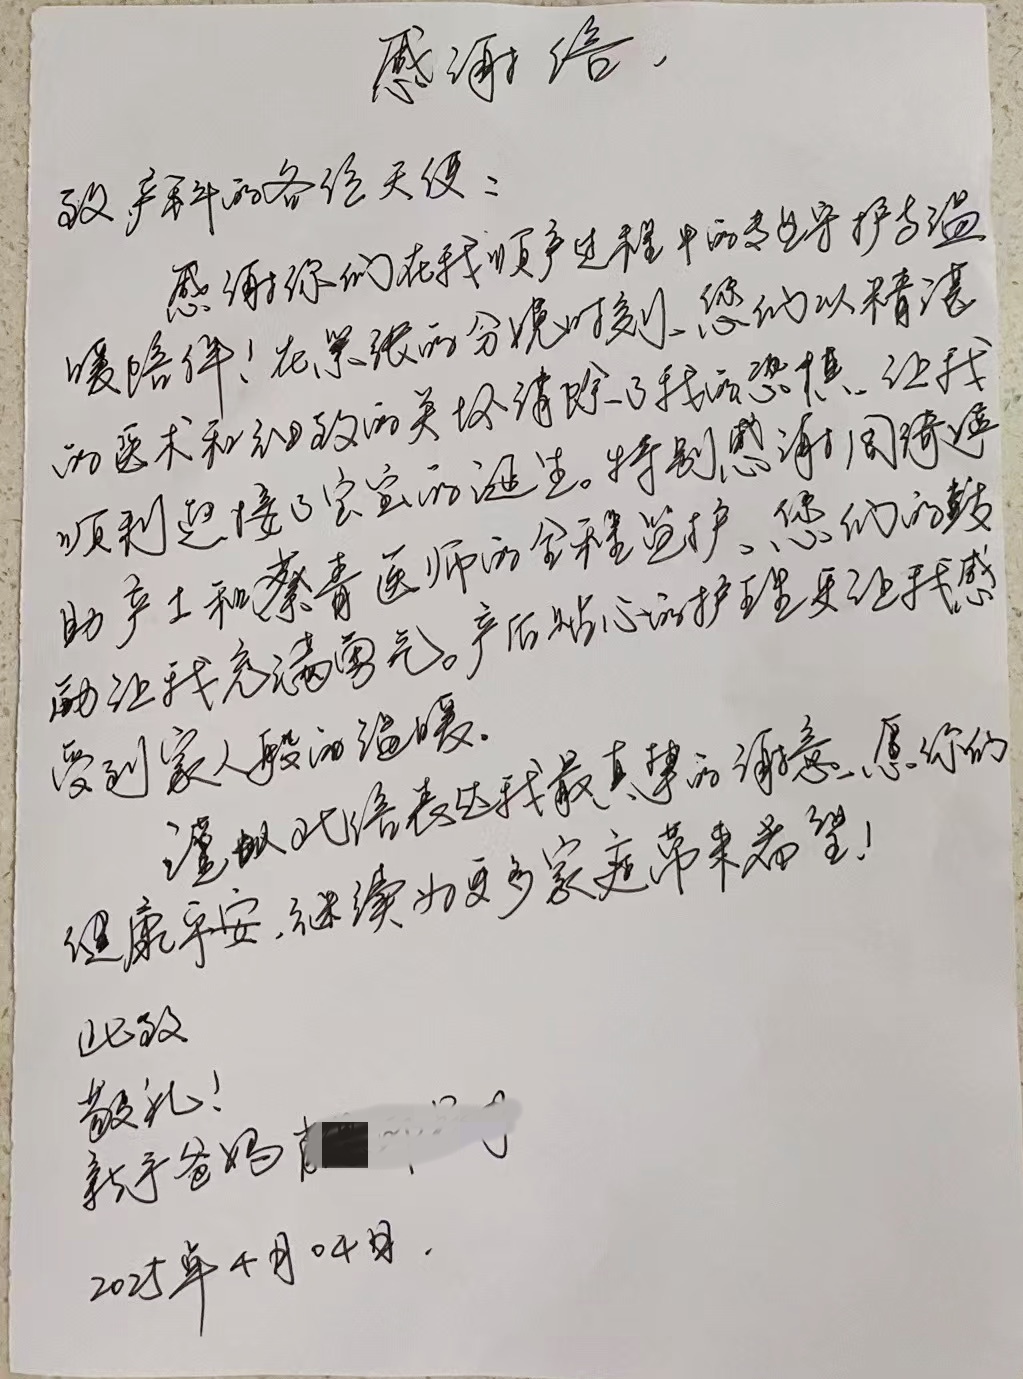 感谢信
致产科的各位天使：
感谢你们在我顺产过程中的专业守护与温
暖陪伴！在紧张的分娩时刻、您们以精湛
的医术和细致的关怀消除了我的恐惧、让我
顺利迎接了宝宝的诞生。特别感谢周绮婷
助产士和蔡青医师的全程监护、您们的鼓
励让我充满勇气。产后贴心的护理更让我感
受到家人般的温暖。
谨以此信表达我最真挚的谢意、愿你们
健康平安、继续为更多家庭带来希望！
此致
敬礼！
新手爸妈
2025年4月04日.